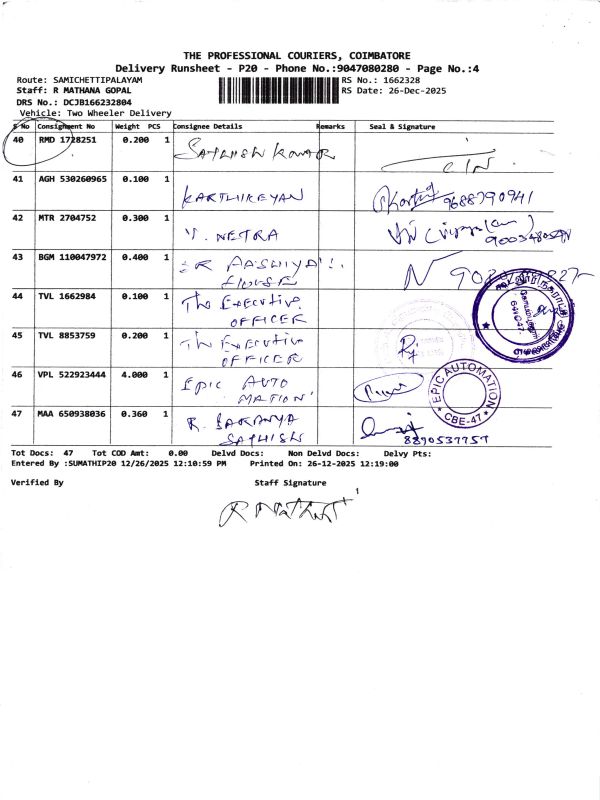 THE PROFESSIONAL COURIERS, COIMBATORE
Delivery Runsheet - P20 - Phone No.:9047080280 - Page No.:4
Route: SAMICHETTIPALAYAM
RS No.: 1662328
Staff: R MATHANA GOPAL
RS Date: 26-Dec-2025
DRS No.: DCJB166232804
Vehicle: Two Wheeler Delivery
S No Consignment No Weight PCS Consignee Details Remarks Seal & Signature
40 RMD 1728251 0.200 1 SATHISH KUMAR
41 AGH 530260965 0.100 1 KARTHIKEYAN 9688790941
42 MTR 2704752 0.300 1 V. NETRA
43 BGM 110047972 0.400 1 HOUSE
44 TVL 1662984 0.100 1 The EXECUTIVE
OFFICER
45 TVL 8853759 0.200 1 The EXECUTIVE
OFFICER
46 VPL 522923444 4.000 1 EPIC AUTO
MATION
EPIC AUTOMATION
CBE-47
47 MAA 650938036 0.360 1 R. SARANYA
SATHISH
8890537757
Tot Docs: 47 Tot COD Amt: 0.00 Delvd Docs: Non Delvd Docs: Delvy Pts:
Entered By :SUMATHIP20 12/26/2025 12:10:59 PM Printed On: 26-12-2025 12:19:00
Verified By Staff Signature